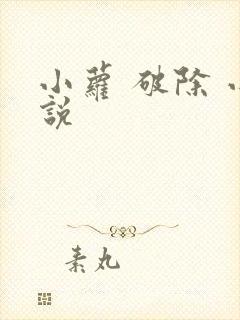 小蘿 破除
說
素丸